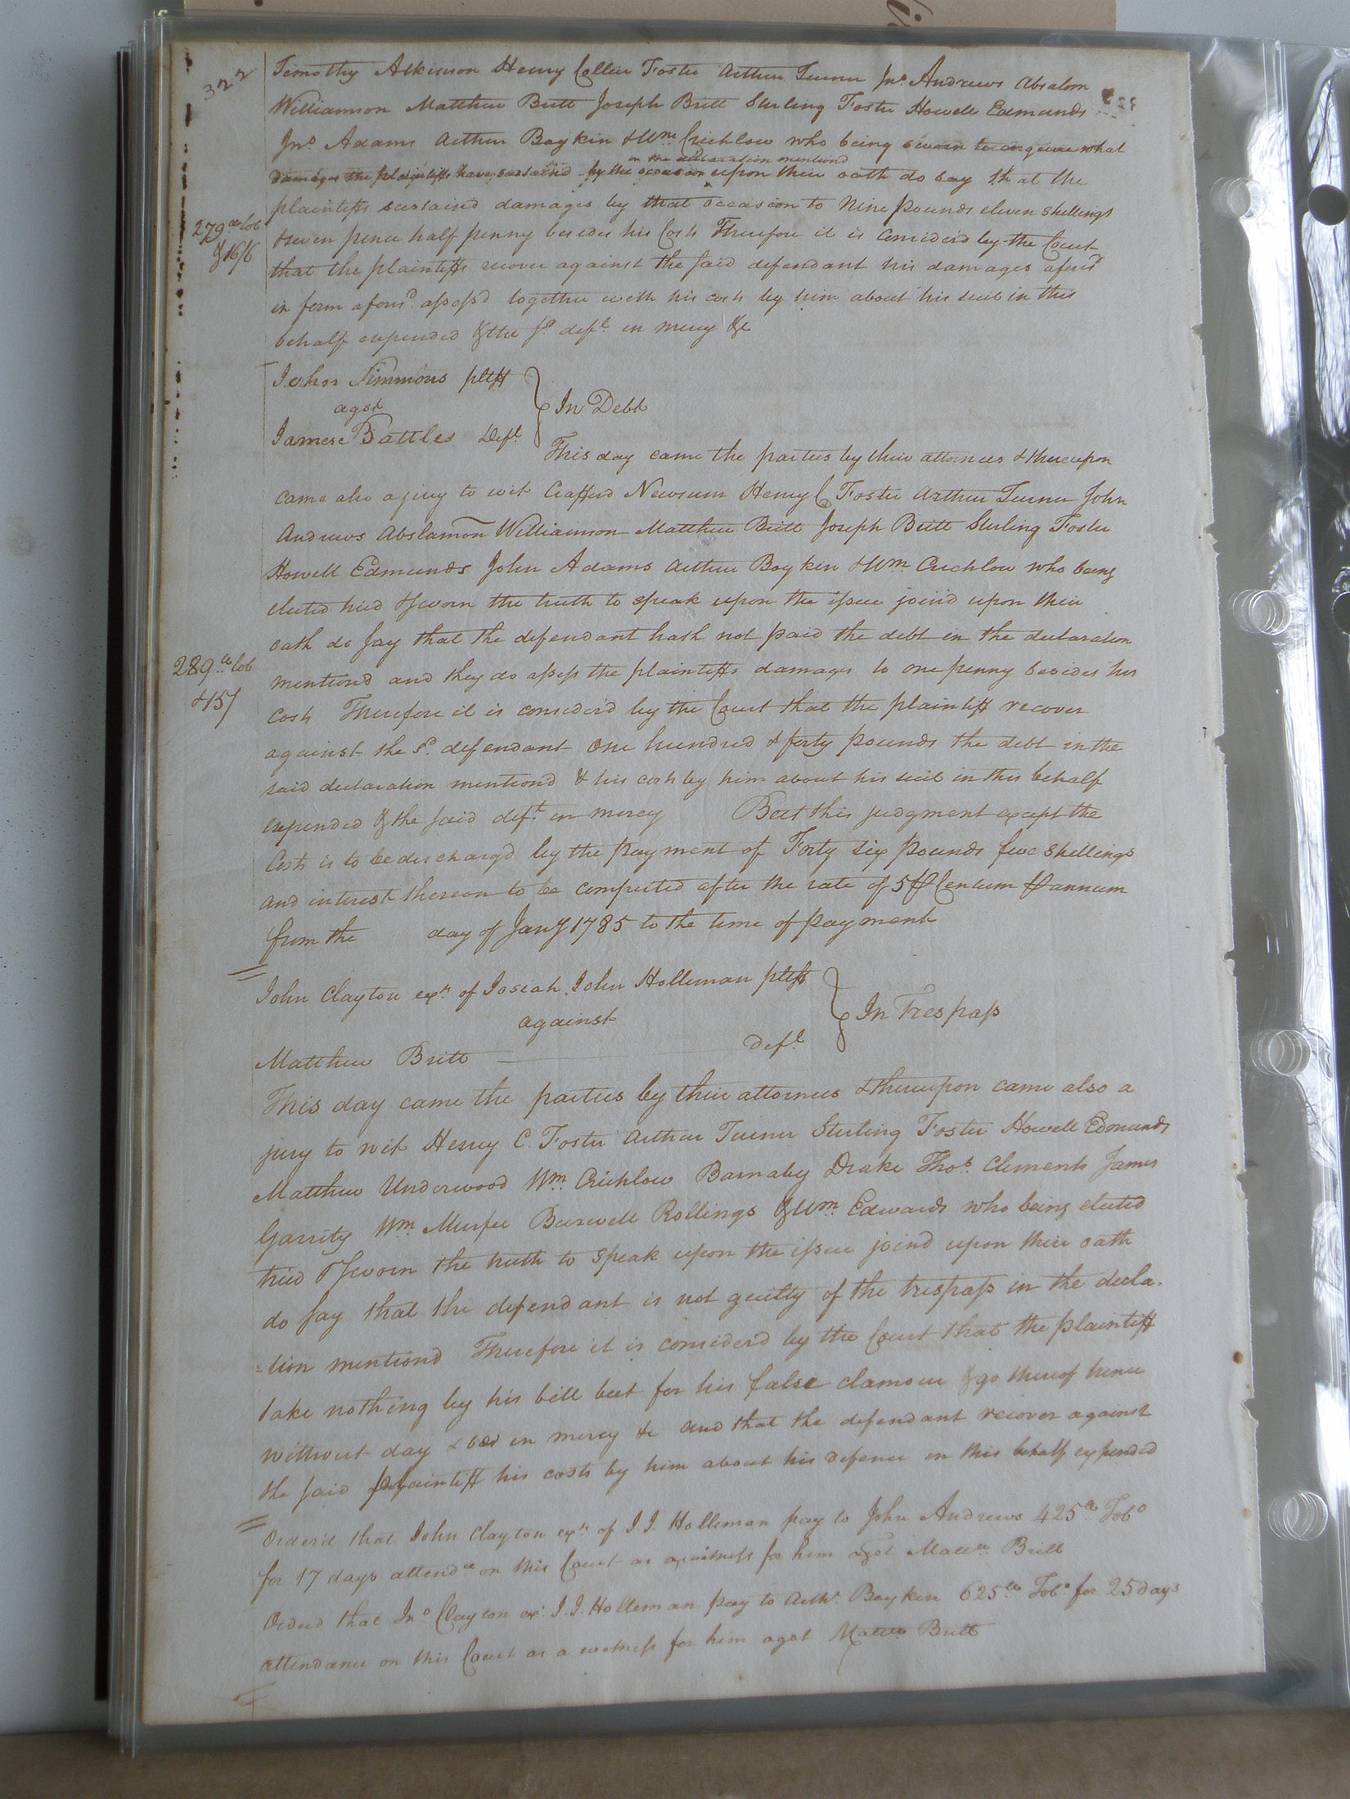 322
Timothy Atkinson Henry Collier Foster Arthur Turner Jno. Andrews Absalom
Williamson Matthew Britt Joseph Britt Sterling Foster Howell Edmunds
Jno. Adams Arthur Boykin & Wm. Crichlow who being sworn to enquire what
in the declaration mentiond
damages the plaintiffs have sustained by the occasion upon their oath do say that the
plaintiffs sustained damages by that occasion to Nine pounds eleven shillings
279 lb tob
& 16/6
& seven pence half penny besides his Costs Therefore it is considerd by the Court
that the plaintiffs recover against the said defendant his damages aforsd
in form aforsd. assess'd together with his costs by him about his suit in this
behalf expended & the sd. deft. in mercy &c
John Simmons pltff
agst
James Battles Deft.
In Debt
This day came the parties by their attornies & thereupon
came also a jury to wit Crafford Newsum Henry C Foster Arthur Turner John
Andrews Abslamon Williamson Matthew Britt Joseph Britt Sterling Foster
Howell Edmunds John Adams Arthur Boykin & Wm. Crichlow who being
elected tried & sworn the truth to speak upon the issue joind upon their
oath do say that the defendant hath not paid the debt in the declaration
289 lb tob
& 15/
mentiond and they do assess the plaintiffs damages to one penny besides his
Costs Therefore it is considerd by the Court that the plaintiff recover
against the sd. defendant One hundred & forty pounds the debt in the
said declaration mentiond & his costs by him about his suit in this behalf
expended & the said deft. in mercy But this judgment except the
Costs is to be dischargd by the payment of Forty six pounds five shillings
and interest thereon to be computed after the rate of 5 ⅌ Centum ⅌ annum
from the day of Jany 1785 to the time of payment
John Clayton exr. of Josiah John Holleman pltff
against
In Trespass
Matthew Britt deft.
This day came the parties by their attornies & thereupon came also a
jury to wit Henry C. Foster Arthur Turner Sterling Foster Howell Edmunds
Matthew Underwood Wm. Crichlow Barnaby Drake Thos. Clements James
Garrity Wm. Murfee Burwell Rollings & Wm. Edwards who being elected
tried & sworn the truth to speak upon the issue joind upon their oath
do say that the defendant is not guilty of the trespass in the decla-
=tion mentiond Therefore it is considerd by the Court that the plaintiff
take nothing by his bill but for his false clamour & go thereof hence
without day & be in mercy &c and that the defendant recover against
the said plaintiff his costs by him about his defence in this behalf expended
Orderd that John Clayton exr. of J.J. Holleman pay to John Andrews 425 lb Tobo
for 17 days attendce on this Court as a witness for him agst Mattw Britt
Orderd that Jno Clayton exr. J.J. Holleman pay to Arthr. Boykin 625 lb Tobo for 25 days
attendance on this Court as a witness for him agst Mattw Britt